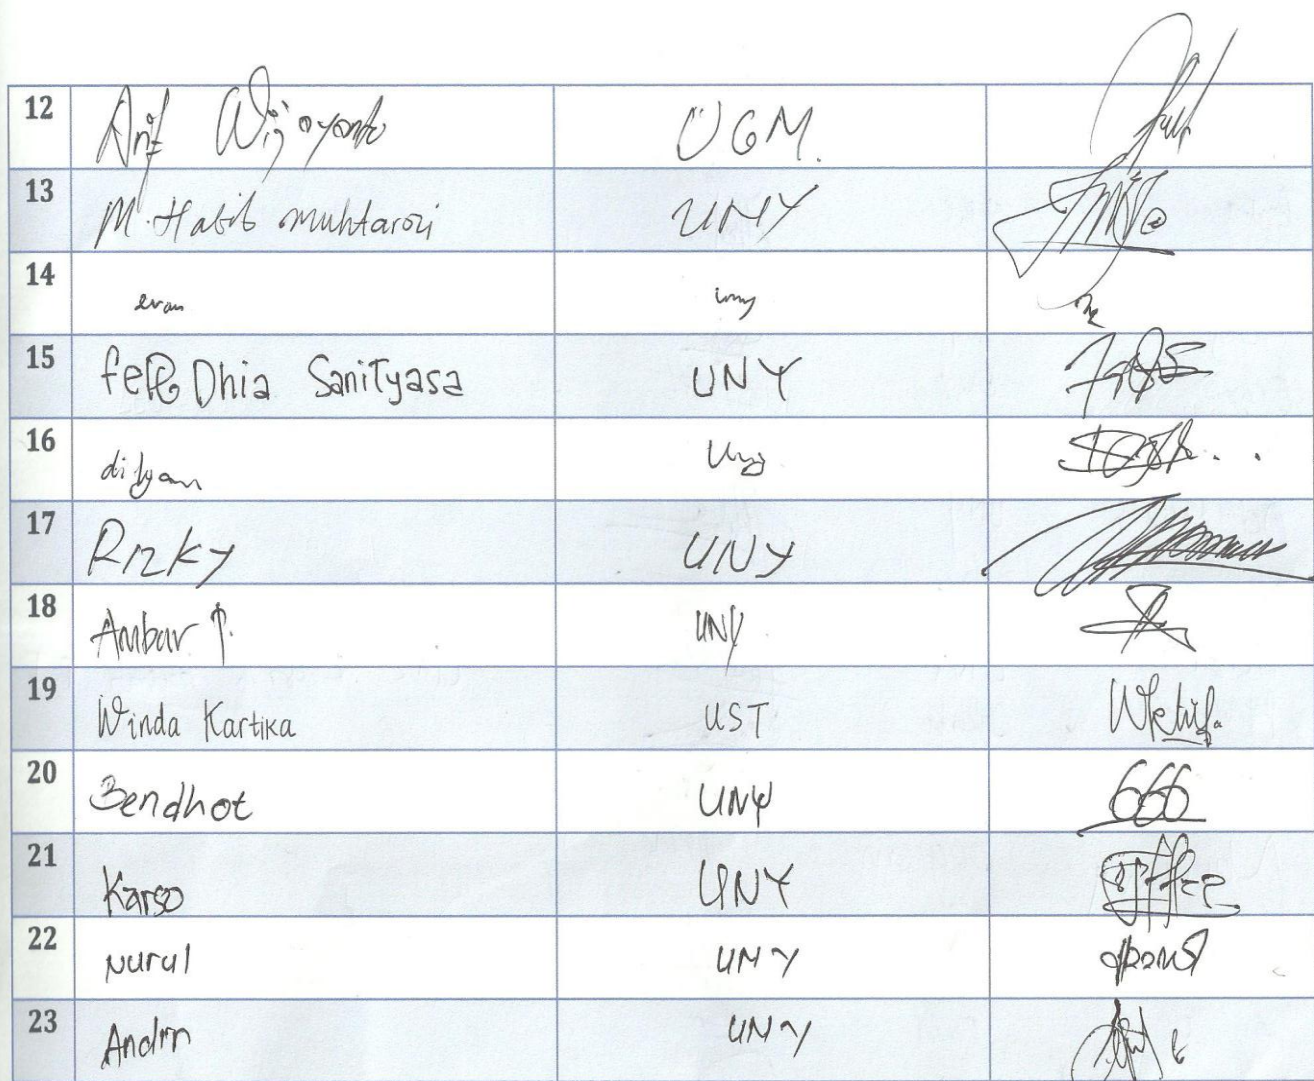 12 Arif Wijayanto UGM.
13 M. Habib Muhtarozi UNY
14 evan uny
15 Dhia Sanityasa UNY
16 Uny
17 Rizky UNY
18 Ambar UNY
19 Winda Kartika UST
20 Bendhot UNY 666
21 Karso UNY
22 Nurul UNY
23 Andrin UNY